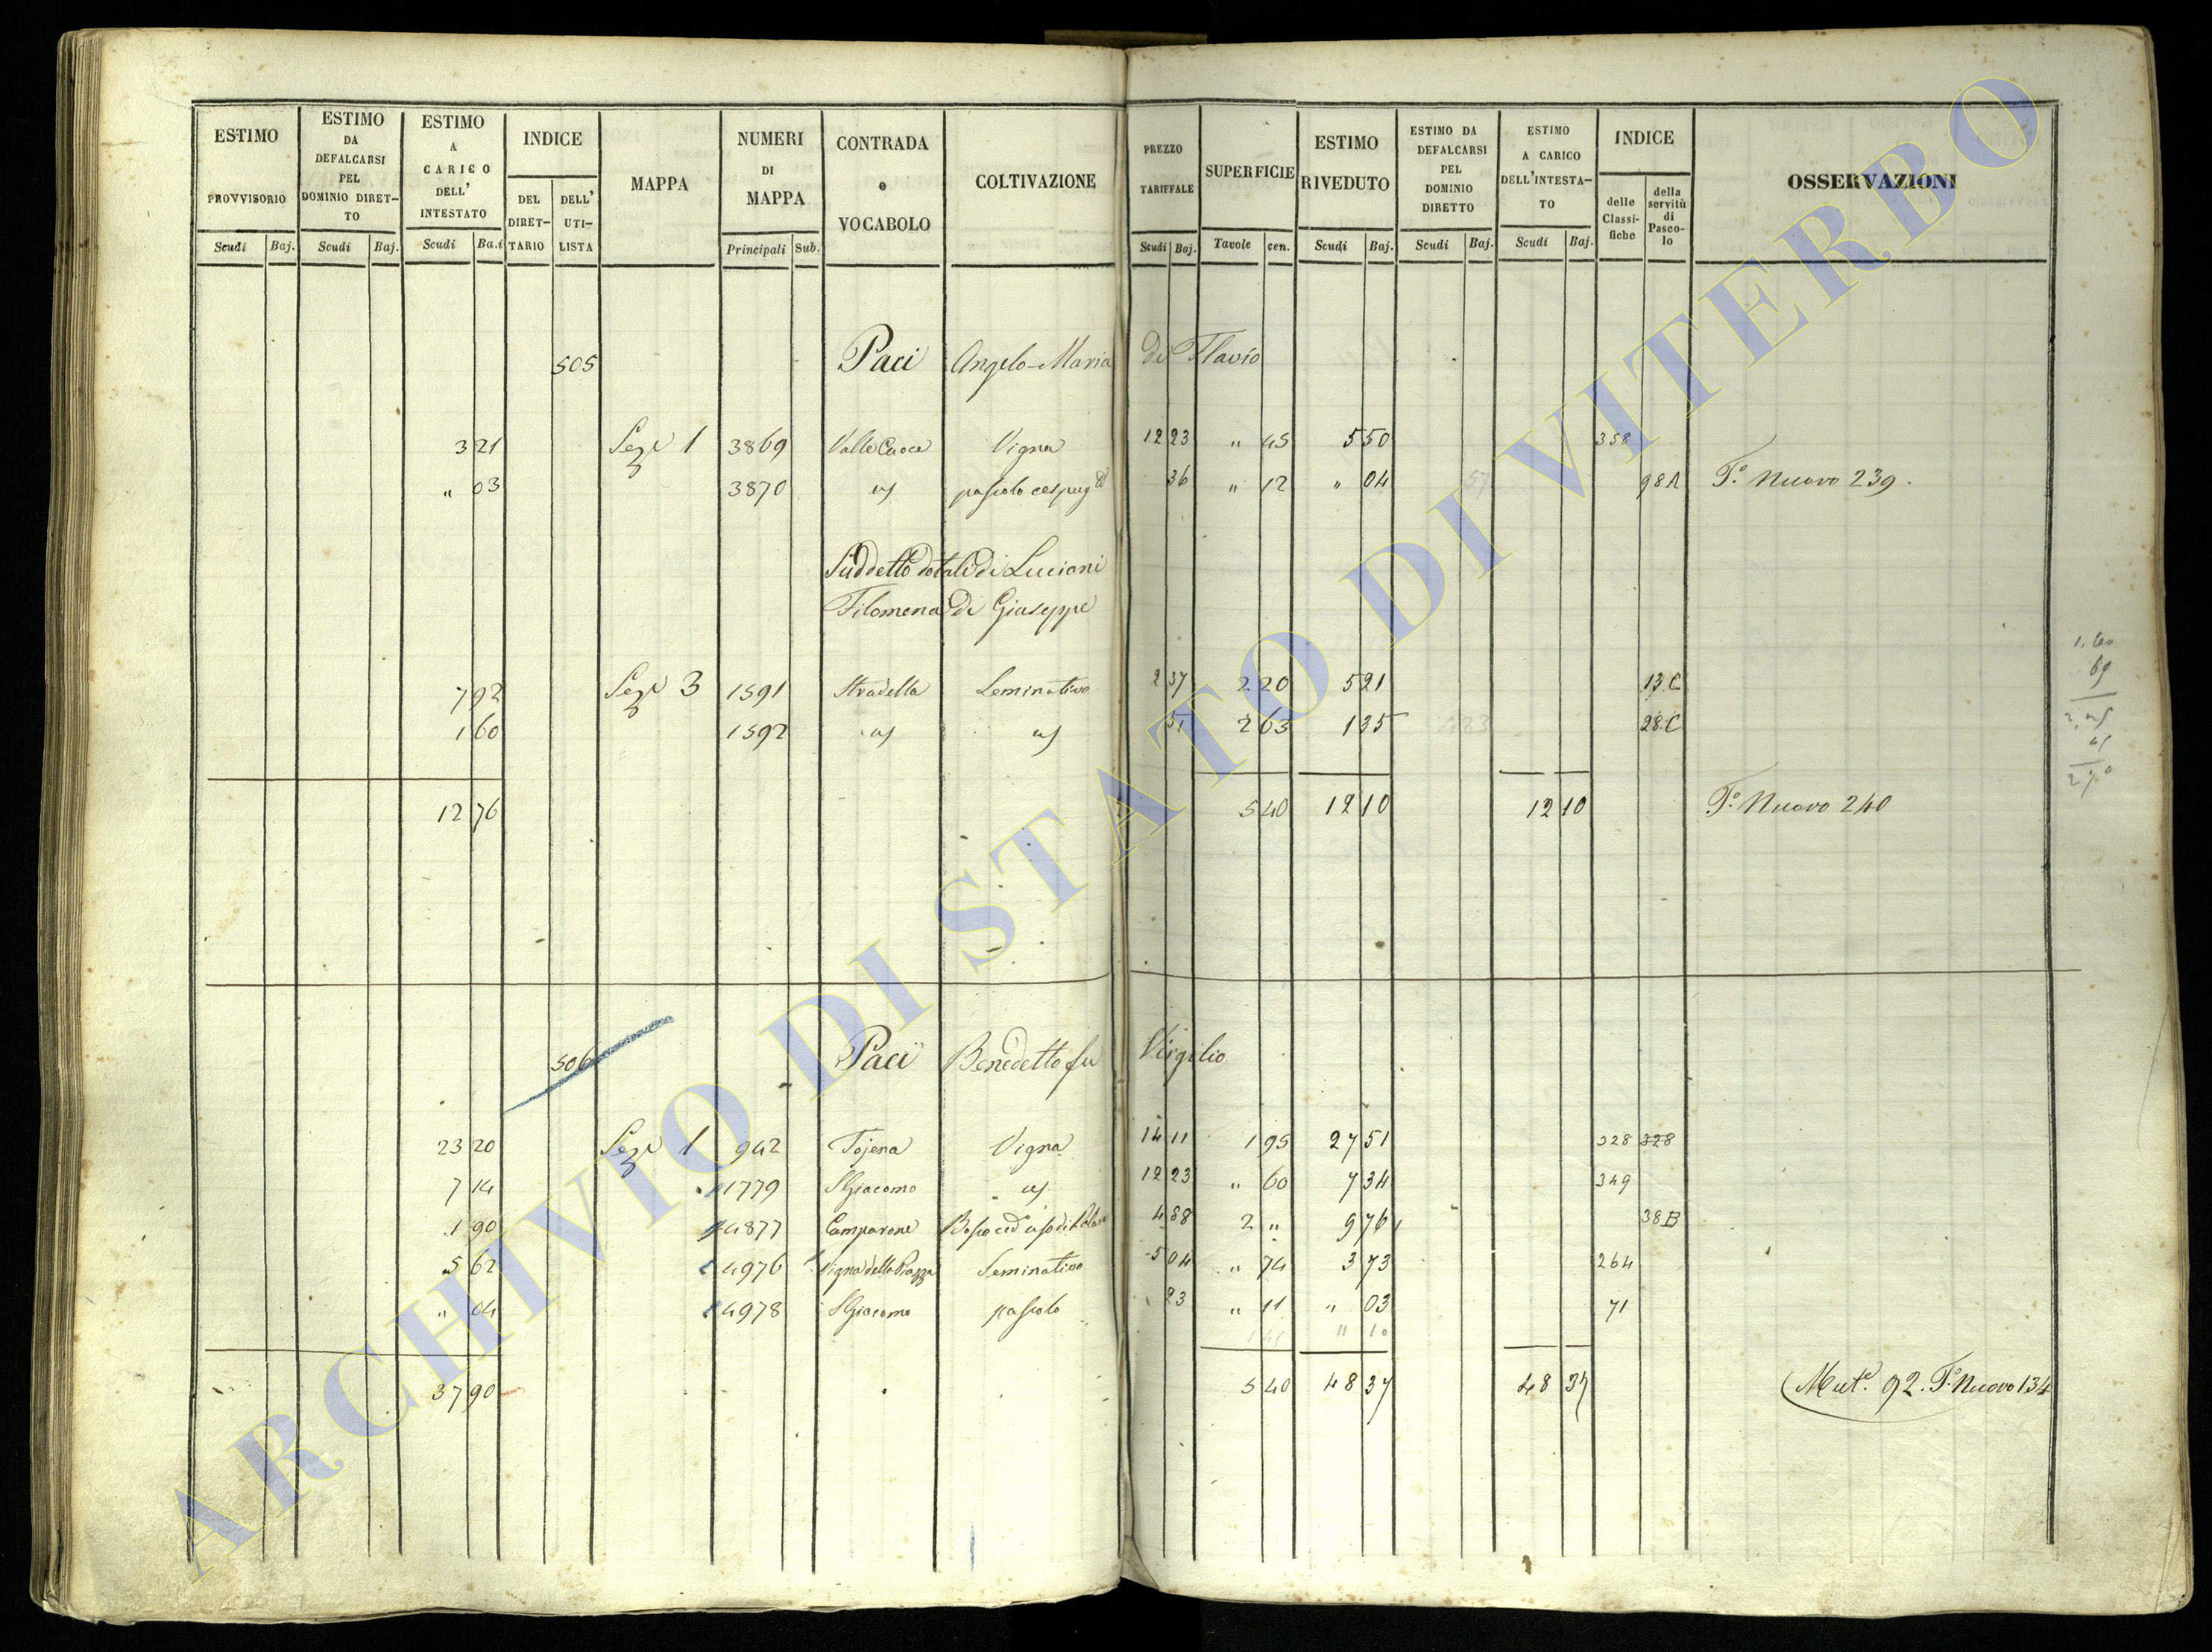 ESTIMO PROVVISORIO Scudi Baj.
ESTIMO DA DEFALCARSI PEL DOMINIO DIRET-TO Scudi Baj.
ESTIMO A CARICO DELL' INTESTATO Scudi Ba.i
INDICE DEL DIRET-TARIO DELL' UTI-LISTA
MAPPA
NUMERI DI MAPPA Principali Sub.
CONTRADA o VOCABOLO
COLTIVAZIONE
PREZZO TARIFFALE Scudi Baj.
SUPERFICIE Tavole cen.
ESTIMO RIVEDUTO Scudi Baj.
ESTIMO DA DEFALCARSI PEL DOMINIO DIRETTO Scudi Baj.
ESTIMO A CARICO DELL'INTESTA-TO Scudi Baj.
INDICE delle Classi-fiche della servitù di Pasco-lo
OSSERVAZIONI
505 Paci Angelo-Maria di Flavio
3 21 Sez. 1 3869 Valle Vigna 12 23 " 45 5 50 358
" 03 3870 " 36 " 12 " 04 98 A F.o Nuovo 239.
Suddetto dotale di Luciani
Filomena di Giuseppe
7 92 Sez. 3 1591 Stradella Seminativo 2 37 2 20 5 21 13 C
1 60 1592 51 2 63 1 35 28 C
12 76 5 40 12 10 12 10 F.o Nuovo 240
506 Paci Benedetto fu Virgilio
23 20 Sez. 1 942 Tojena Vigna 14 11 1 95 27 51 328 328
7 14 1779 S Giacomo 12 23 " 60 7 34 349
1 90 4877 Camparone 4 88 2 " 9 76 38 B
5 62 4976 Vigna della Piazza Seminativo 5 04 " 74 3 73 264
" 04 4978 S Giacomo pascolo 23 " 11 " 03 71
" 10
37 90 5 40 48 37 48 37 Mut.e 92. F.o Nuovo 134
ARCHIVIO DI STATO DI VITERBO